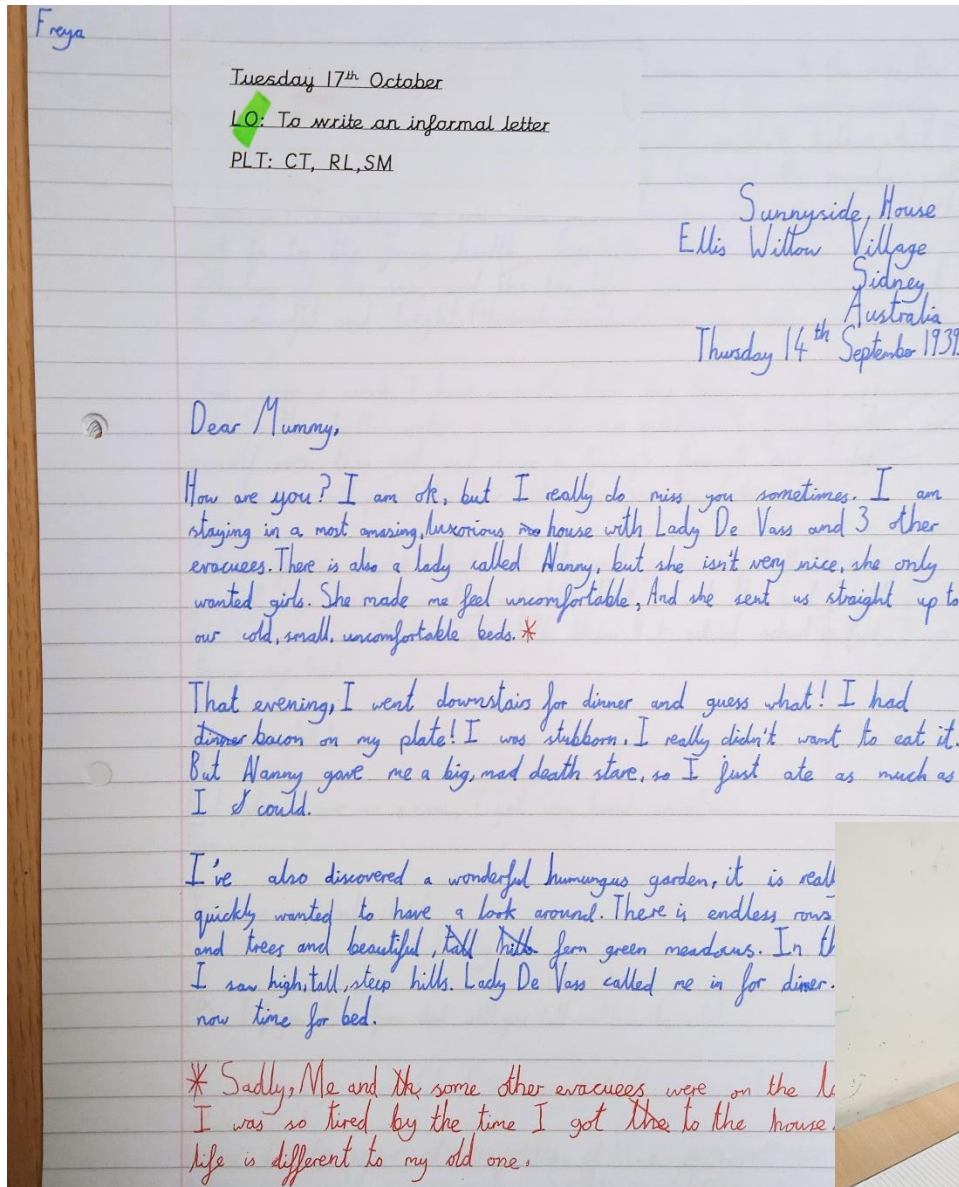 Freya
Tuesday 17th October
LO: To write an informal letter
PLT: CT, RL,SM
Sunnyside, House
Ellis Willow Village
Sidney
Australia
Thursday 14th September 1939.
Dear Mummy,
How are you? I am ok, but I really do miss you sometimes. I am
staying in a most amasing, luxorious house with Lady De Vass and 3 other
evacuees. There is also a lady called Nanny, but she isn't very nice, she only
wanted girls. She made me feel uncomfortable, And she sent us straight up to
our cold, small, uncomfortable beds. *
That evening, I went downstairs for dinner and guess what! I had
dinner bacon on my plate! I was stubborn. I really didn't want to eat it.
But Nanny gave me a big, mad death stare, so I just ate as much as
I could.
I've also discovered a wonderful humungus garden, it is reall
quickly wanted to have a look around. There is endless rows
and trees and beautiful, tall hills fern green meadows. In th
I saw high, tall, steep hills. Lady De Vass called me in for dinner.
now time for bed.
* Sadly, Me and some other evacuees were on the
I was so tired by the time I got the to the house.
life is different to my old one.